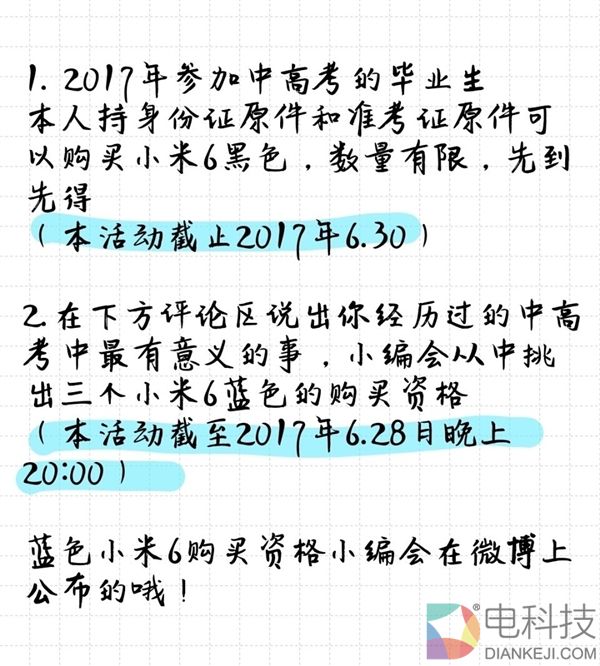 1. 2017年参加中高考的毕业生
本人持身份证原件和准考证原件可
以购买小米6黑色，数量有限，先到
先得
（本活动截止2017年6.30）
2.在下方评论区说出你经历过的中高
考中最有意义的事，小编会从中挑
出三个小米6蓝色的购买资格
（本活动截至2017年6.28日晚上
20:00）
蓝色小米6购买资格小编会在微博上
公布的哦！
®电科技
DIANKEJI.COM